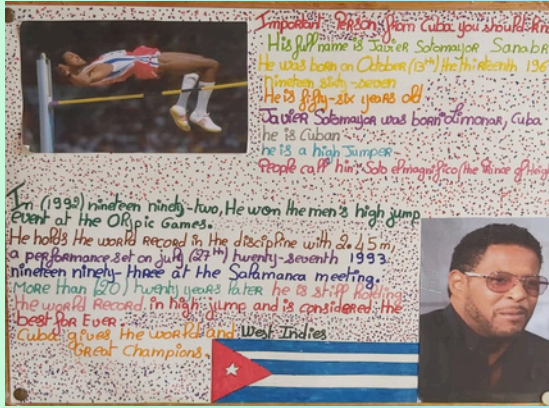 Important Person from Cuba you should
His full name is Javier Sotomayor Sanabr
He was born on October (13th) the thirteenth 196
nineteen sixty-seven
He is fifty-six years old
Javier Sotomayor was born Limonar, Cuba
he is Cuban
he is a high Jumper-
People call him: Soto el magnifico/the Prince of Heigh
In (1992) nineteen ninety-two, He won the men's high jump
event at the Olypic Games.
He holds the world Record in the discipline with 2.45m,
a performance set on july (27th) twenty-seventh 1993
nineteen ninety-three at the Salamanca meeting.
More than (20) twenty years later he is still holding
the world Record in high jump and is considered the
best for Ever.
Cuba gives the world and West Indies
Great Champions.